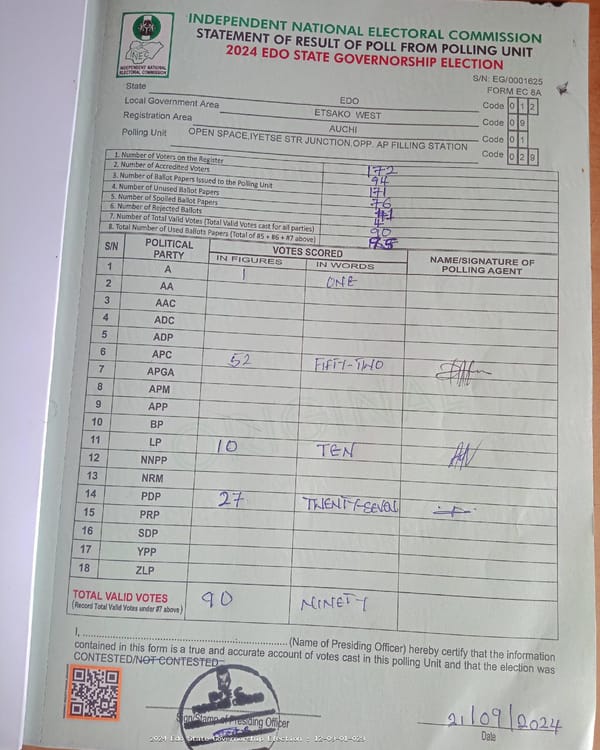 INDEPENDENT NATIONAL ELECTORAL COMMISSION
STATEMENT OF RESULT OF POLL FROM POLLING UNIT
2024 EDO STATE GOVERNORSHIP ELECTION
INEC
INDEPENDENT NATIONAL
ELECTORAL COMMISSION
S/N: EG/0001625
FORM EC 8A
State EDO Code 0 1 2
Local Government Area ETSAKO WEST Code 0 9
Registration Area AUCHI Code 0 1
Polling Unit OPEN SPACE,IYETSE STR JUNCTION,OPP. AP FILLING STATION Code 0 2 9
1. Number of Voters on the Register 172
2. Number of Accredited Voters 94
3. Number of Ballot Papers Issued to the Polling Unit 171
4. Number of Unused Ballot Papers 76
5. Number of Spoiled Ballot Papers
6. Number of Rejected Ballots 4
7. Number of Total Valid Votes (Total Valid Votes cast for all parties) 90
8. Total Number of Used Ballots Papers (Total of #5 + #6 + #7 above)
S/N POLITICAL PARTY VOTES SCORED NAME/SIGNATURE OF POLLING AGENT
IN FIGURES IN WORDS
1 A 1 ONE
2 AA
3 AAC
4 ADC
5 ADP
6 APC 52 FIFTY-TWO
7 APGA
8 APM
9 APP
10 BP
11 LP 10 TEN
12 NNPP
13 NRM
14 PDP 27 TWENTY-SEVEN
15 PRP
16 SDP
17 YPP
18 ZLP
TOTAL VALID VOTES 90 NINETY
(Record Total Valid Votes under #7 above)
I, (Name of Presiding Officer) hereby certify that the information
contained in this form is a true and accurate account of votes cast in this polling Unit and that the election was
CONTESTED/NOT CONTESTED
Sign/Stamp of Presiding Officer
21/09/2024
Date
2024 Edo State Governorship Election - 12-09-01-029